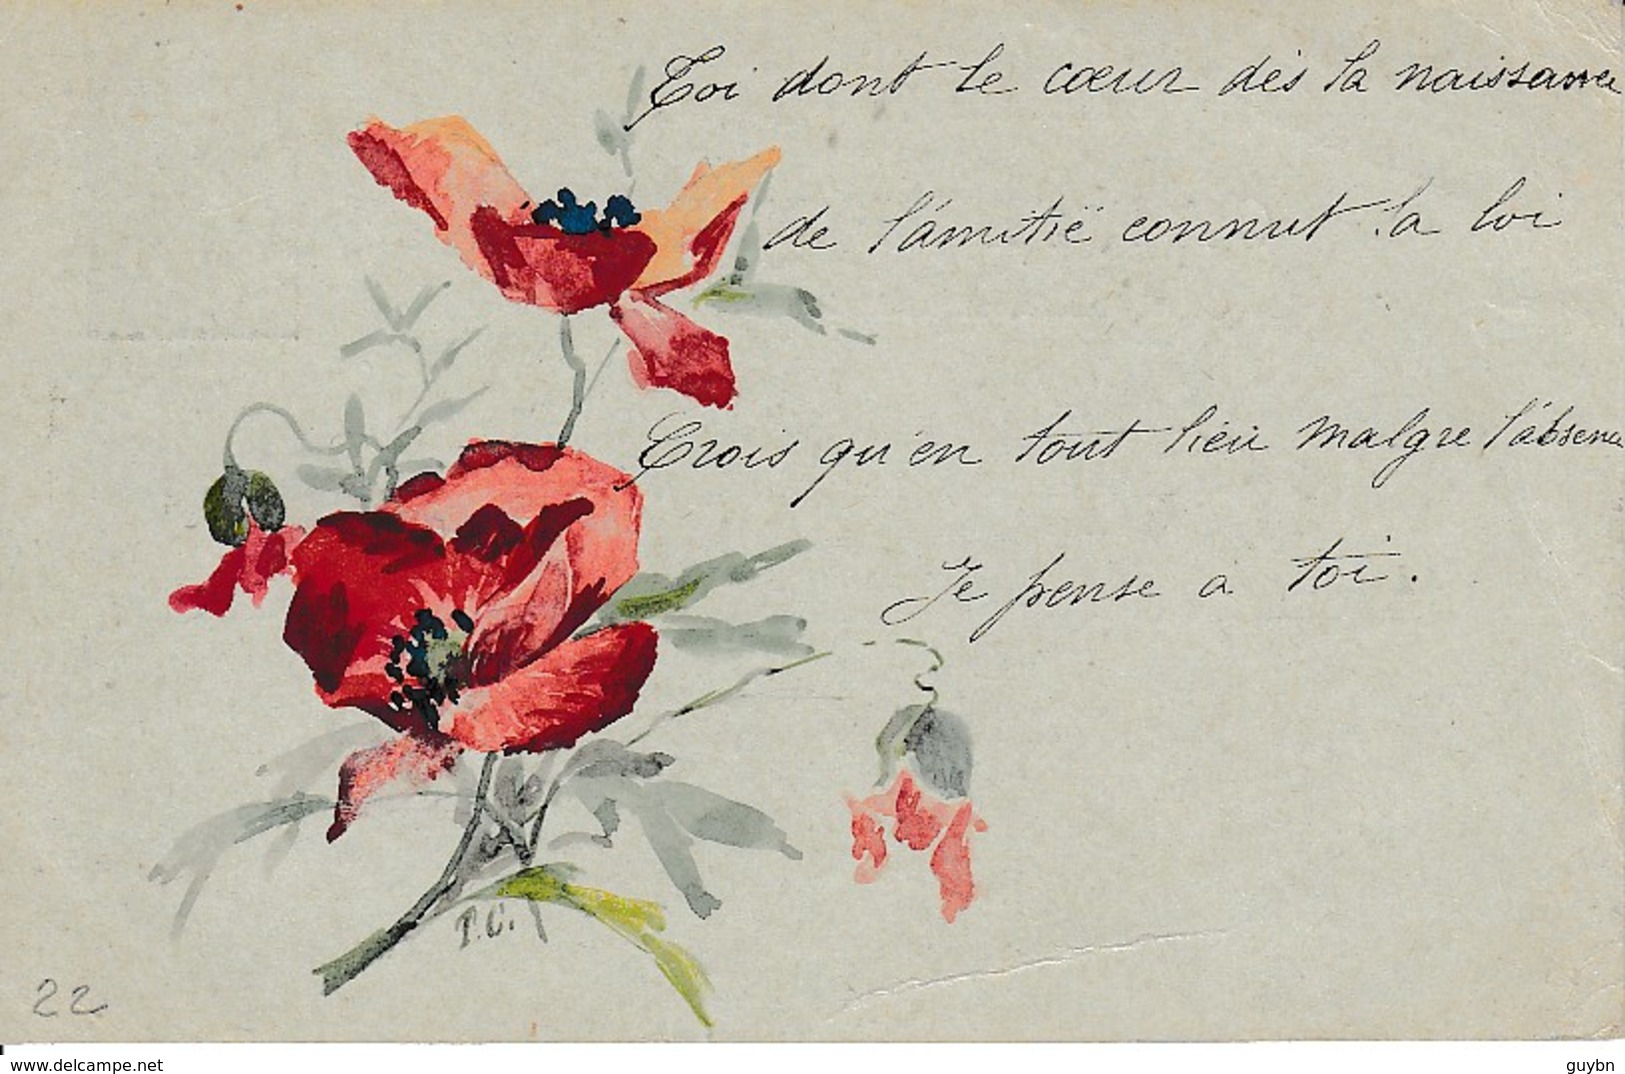 Toi dont le cœur dès la naissance
de l'amitié connut la loi
Crois qu'en tout lieu malgre l'absence
Je pense a toi.
P.C.
22
www.delcampe.net
guybn